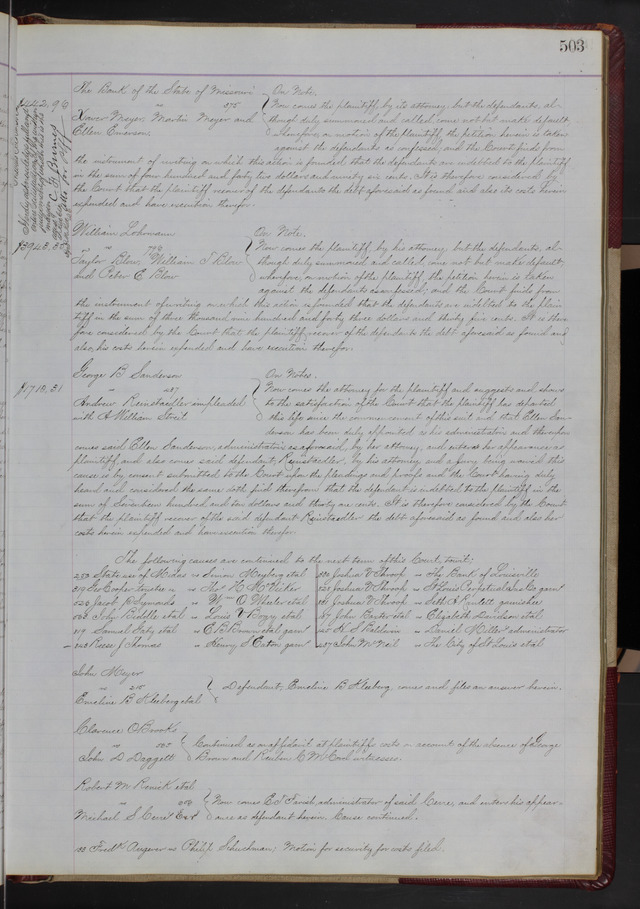 503
The Bank of the State of Missouri } On Note.
$442.96 vs 875 Now comes the plaintiff, by its attorney, but the defendants, al-
Xaver Meyer, Martin Meyer and though duly summoned and called, come not but make default,
Ellen Emerson. wherefore, on motion of the plaintiff, the petition herein is taken
against the defendants as confessed, and the Court finds from
the instrument of writing on which this action is founded, that the defendants are indebted to the plaintiff
in the sum of four hundred and forty two dollars and ninety six cents. It is therefore considered by
the Court that the plaintiff recover of the defendants the debt aforesaid as found and also its costs herein
expended and have execution therefor.
William Lohmann On Note.
$3943.35 Now comes the plaintiff, by his attorney, but the defendants, al-
Taylor Blow, William T Blow though duly summoned and called, come not but make default,
and Peter E Blow wherefore, on motion of the plaintiff, the petition herein is taken
against the defendants as confessed; and the Court finds from
the instrument of writing on which this action is founded that the defendants are indebted to the plain-
tiff in the sum of three thousand nine hundred and forty three dollars and thirty five cents. It is there-
fore considered by the Court that the plaintiff recover of the defendants the debt aforesaid as found and
also, his costs herein expended and have execution therefor.
George B. Sanderson On Notes.
$1710.31 vs 487 Now comes the attorney for the plaintiff and suggests and shows
Andrew Reinstaedler impleaded to the satisfaction of the Court that the plaintiff has departed
with A William Streit this life since the commencement of this suit and that Ellen San-
derson has been duly appointed as his administratrix and thereupon
comes said Ellen Sanderson, administratrix as aforesaid, by her attorney, and enters her appearance as
plaintiff, and also comes said defendant, Reinstaedler, by his attorney, and a jury being waived this
cause is by consent submitted to the Court upon the pleadings and proofs and the Court having duly
heard and considered the same doth find therefrom that the defendant is indebted to the plaintiff in the
sum of Seventeen hundred and ten dollars and thirty one cents. It is therefore considered by the Court
that the plaintiff recover of the said defendant Reinstaedler the debt aforesaid as found and also her
costs herein expended and have execution therefor.
The following causes are continued to the next term of this Court, to wit:
State use of Midas vs Simon Moyberg etal Joshua V Throop vs The Bank of Louisville
Cooper trustee vs Thos. H McVicker Joshua V Throop vs St Louis Perpetual Ins Co garn
Jacob P Symonds vs O Wheeler etal Joshua V Throop vs Seth A Ranlett garnishee
John Biddle etal vs Louis V Bogy etal John Barker etal vs Elizabeth Davidson etal
Samuel Gaty etal vs E. B. Brown etal garn K S Baldwin vs Daniel Miller administrator
Reese J Thomas vs Henry S Eaton garn John McNeil vs The City of St Louis etal
John Meyer
vs 215 } Defendant, Emeline B Kleeberg comes and files an answer herein.
Emeline B Kleeberg etal
Clarence O Brooks
vs Continued as on affidavit at plaintiffs costs on account of the absence of George
John D Daggett Brown and Reuben C McCord witnesses.
Robert M Renick etal
vs Now comes E T Farish administrator of said Cerre, and enters his appear-
Michael S Cerre Exr ance as defendant herein. Cause continued.
Fredk. Augerer vs Philip Schuchman; Motion for security for costs filed.